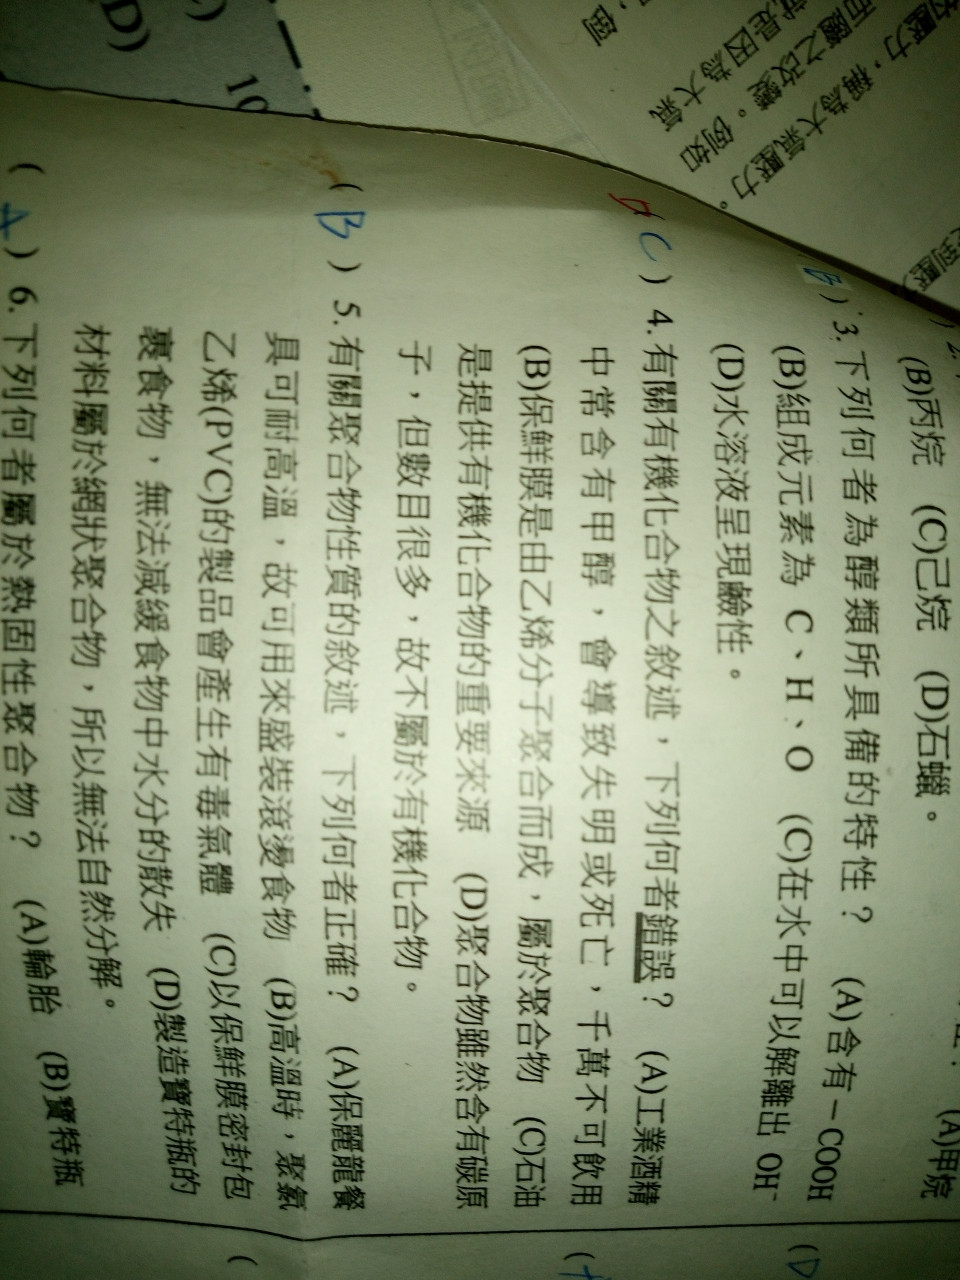 (B)丙烷 (C)己烷 (D)石蠟。
(B) 3.下列何者為醇類所具備的特性？ (A)含有－COOH
(B)組成元素為 C、H、O (C)在水中可以解離出 OH⁻
(D)水溶液呈現鹼性。
C ) 4.有關有機化合物之敘述，下列何者錯誤？ (A)工業酒精
中常含有甲醇，會導致失明或死亡，千萬不可飲用
(B)保鮮膜是由乙烯分子聚合而成，屬於聚合物 (C)石油
是提供有機化合物的重要來源 (D)聚合物雖然含有碳原
子，但數目很多，故不屬於有機化合物。
( B ) 5.有關聚合物性質的敘述，下列何者正確？ (A)保麗龍餐
具可耐高溫，故可用來盛裝滾燙食物 (B)高溫時，聚氯
乙烯(PVC)的製品會產生有毒氣體 (C)以保鮮膜密封包
裹食物，無法減緩食物中水分的散失 (D)製造寶特瓶的
材料屬於網狀聚合物，所以無法自然分解。
( A ) 6.下列何者屬於熱固性聚合物？ (A)輪胎 (B)寶特瓶
(A)甲烷
的壓力，稱為大氣壓力。
而隨之改變。例如
就是因為大氣
，倒
D)
10